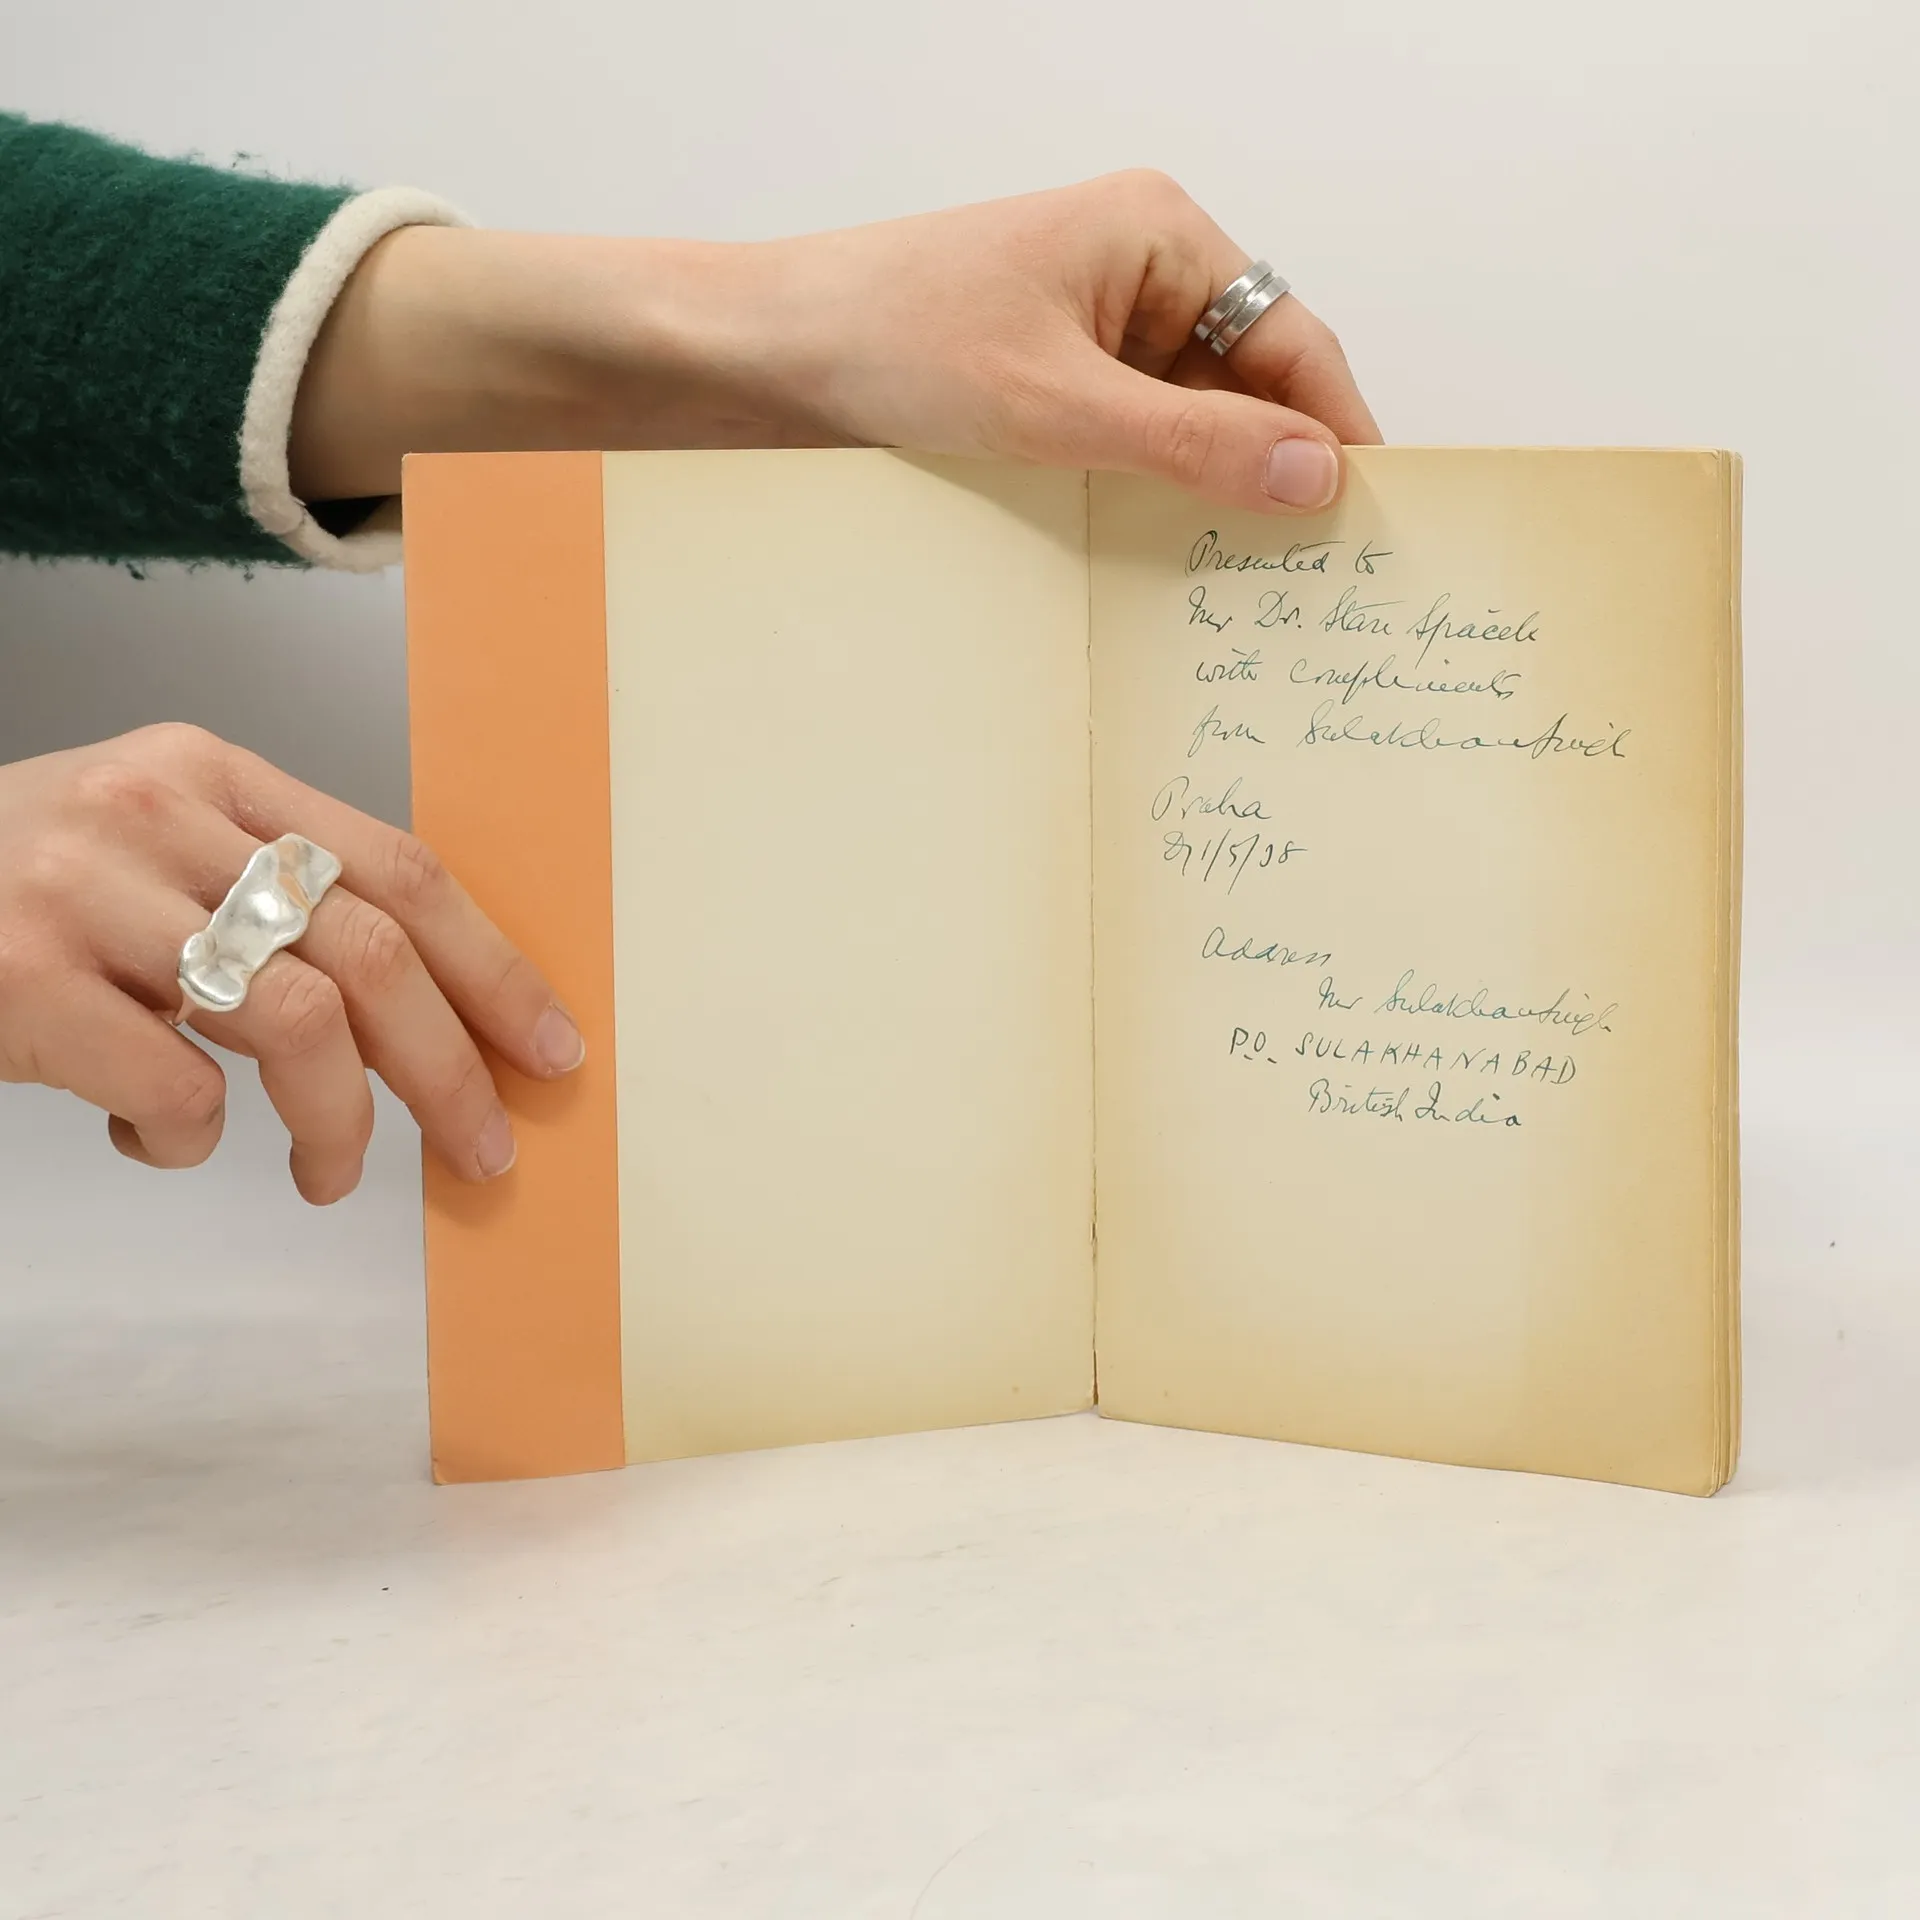 Presented to
Mr Dr. Stan Špáček
with compliments
from Sulakhan Singh
Praha
D/ 1/5/38
Address
Mr Sulakhan Singh
P.O. SULAKHANABAD
British India